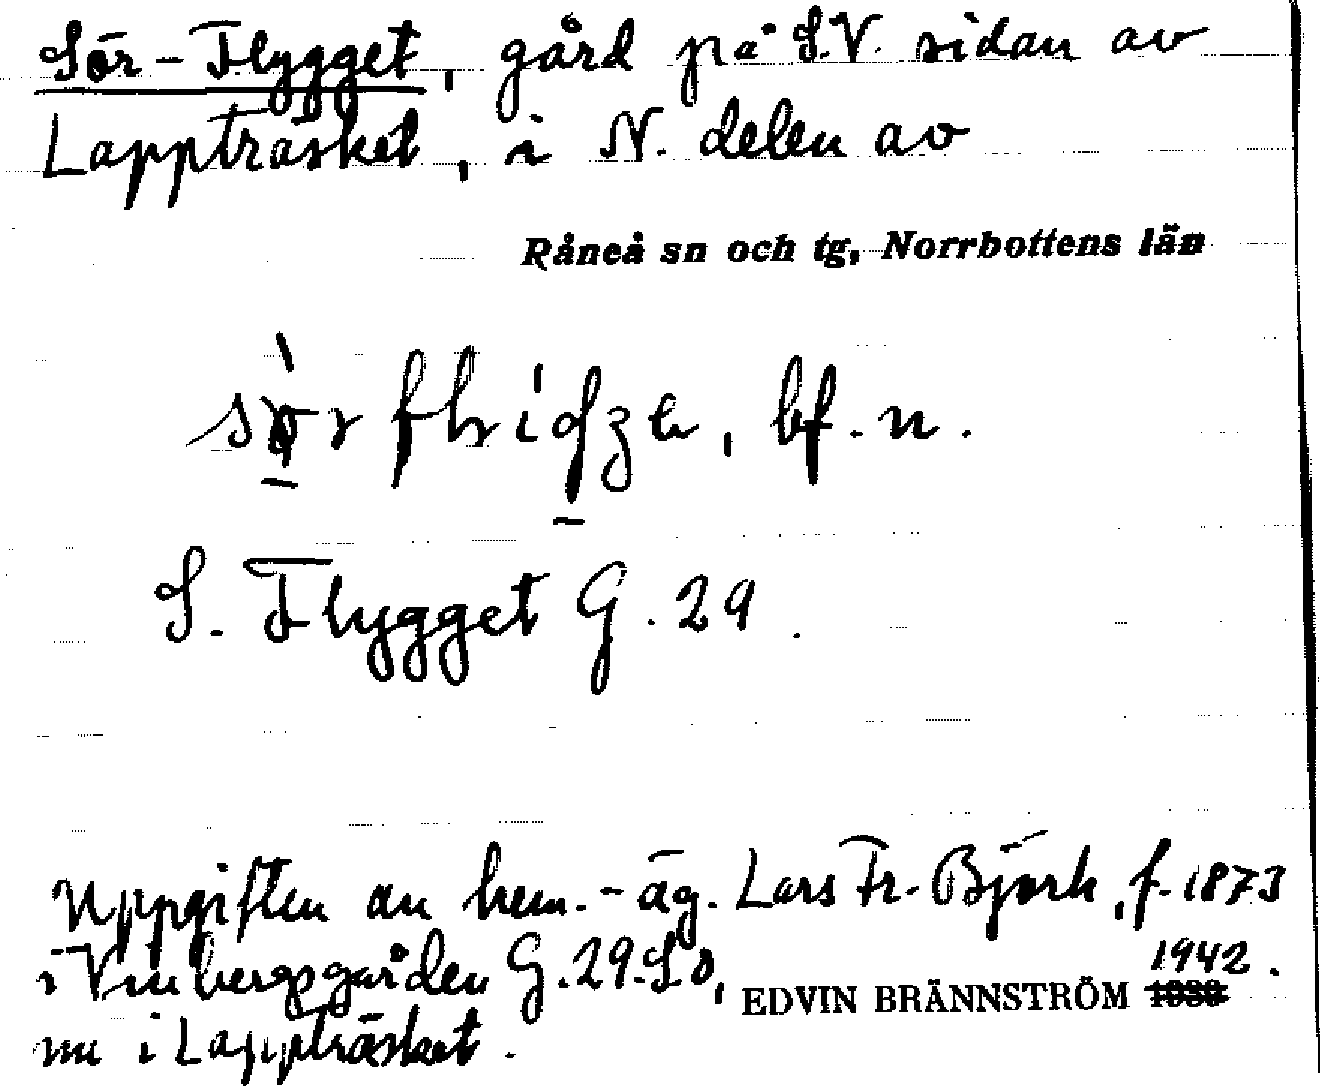 Sör-Flygget, gård på S.V. sidan av
Lappträsket, i N. delen av
Råneå sn och tg, Norrbottens län
bf. n.
S. Flygget G. 29.
Uppgiften av hem.-äg. Lars Fr. Björk, f. 1873
i Vinbergsgården G. 29. S o,
1942.
EDVIN BRÄNNSTRÖM 1930
nu i Lappträsket.